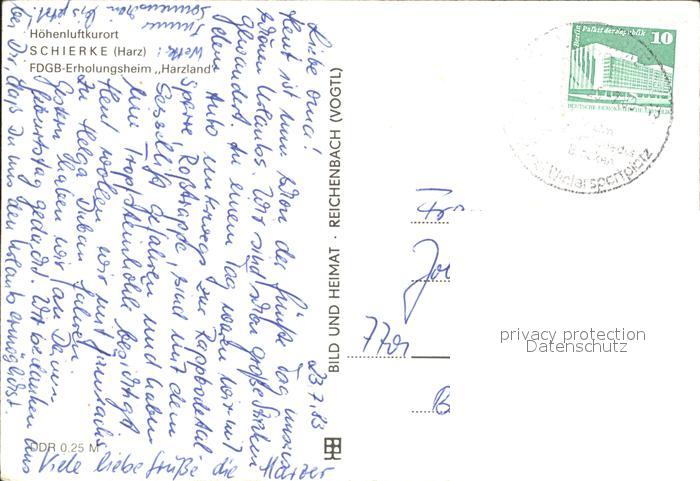 Höhenluftkurort
SCHIERKE (Harz)
FDGB-Erholungsheim „Harzland"
DDR 0,25 M
BILD UND HEIMAT · REICHENBACH (VOGTL)
Berlin Palast der Republik
10
DEUTSCHE DEMOKRATISCHE REPUBLIK
Wintersportplatz
23.7.83
Liebe Oma!
Heut ist nun schon der fünfte Tag unseres
schönen Urlaubs. Wir sind schon große Strecken
gewandert. An einem Tag waren wir mit
dem Auto unterwegs zur Rappbodetal
sperre, Roßtrappe, sind mit dem
Sessellift gefahren und haben
eine Tropfsteinhöhle besichtigt
Heut wollen wir mit
zu Helga Duban fahren.
Gestern haben wir an Deinen
Geburtstag gedacht. Wir bedanken uns
bei Dir, daß Du uns den Urlaub ermöglichst.
Viele liebe Grüße die Harzer
Wetter:
Immer
Sonnenschein
privacy protection
Datenschutz